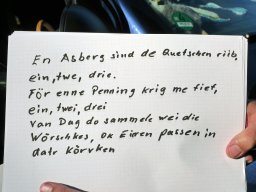 En Asberg sind de Quetschen riib,
ein, twe, drie.
För enne Penning krig me fief,
ein, twei, drei
Van Dag do sammele wei die
Wörschkes, Ok Eieren passen in
datr Körvken